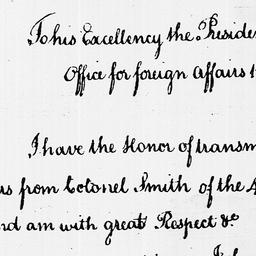 To his Excellency the Preside
Office for foreign Affairs
I have the Honor of transm
rs from Colonel Smith of the
nd am with great Respect &c